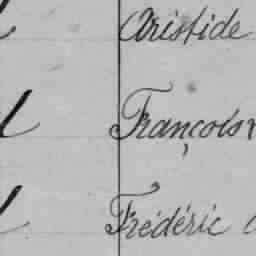 Aristide
François
Frédéric